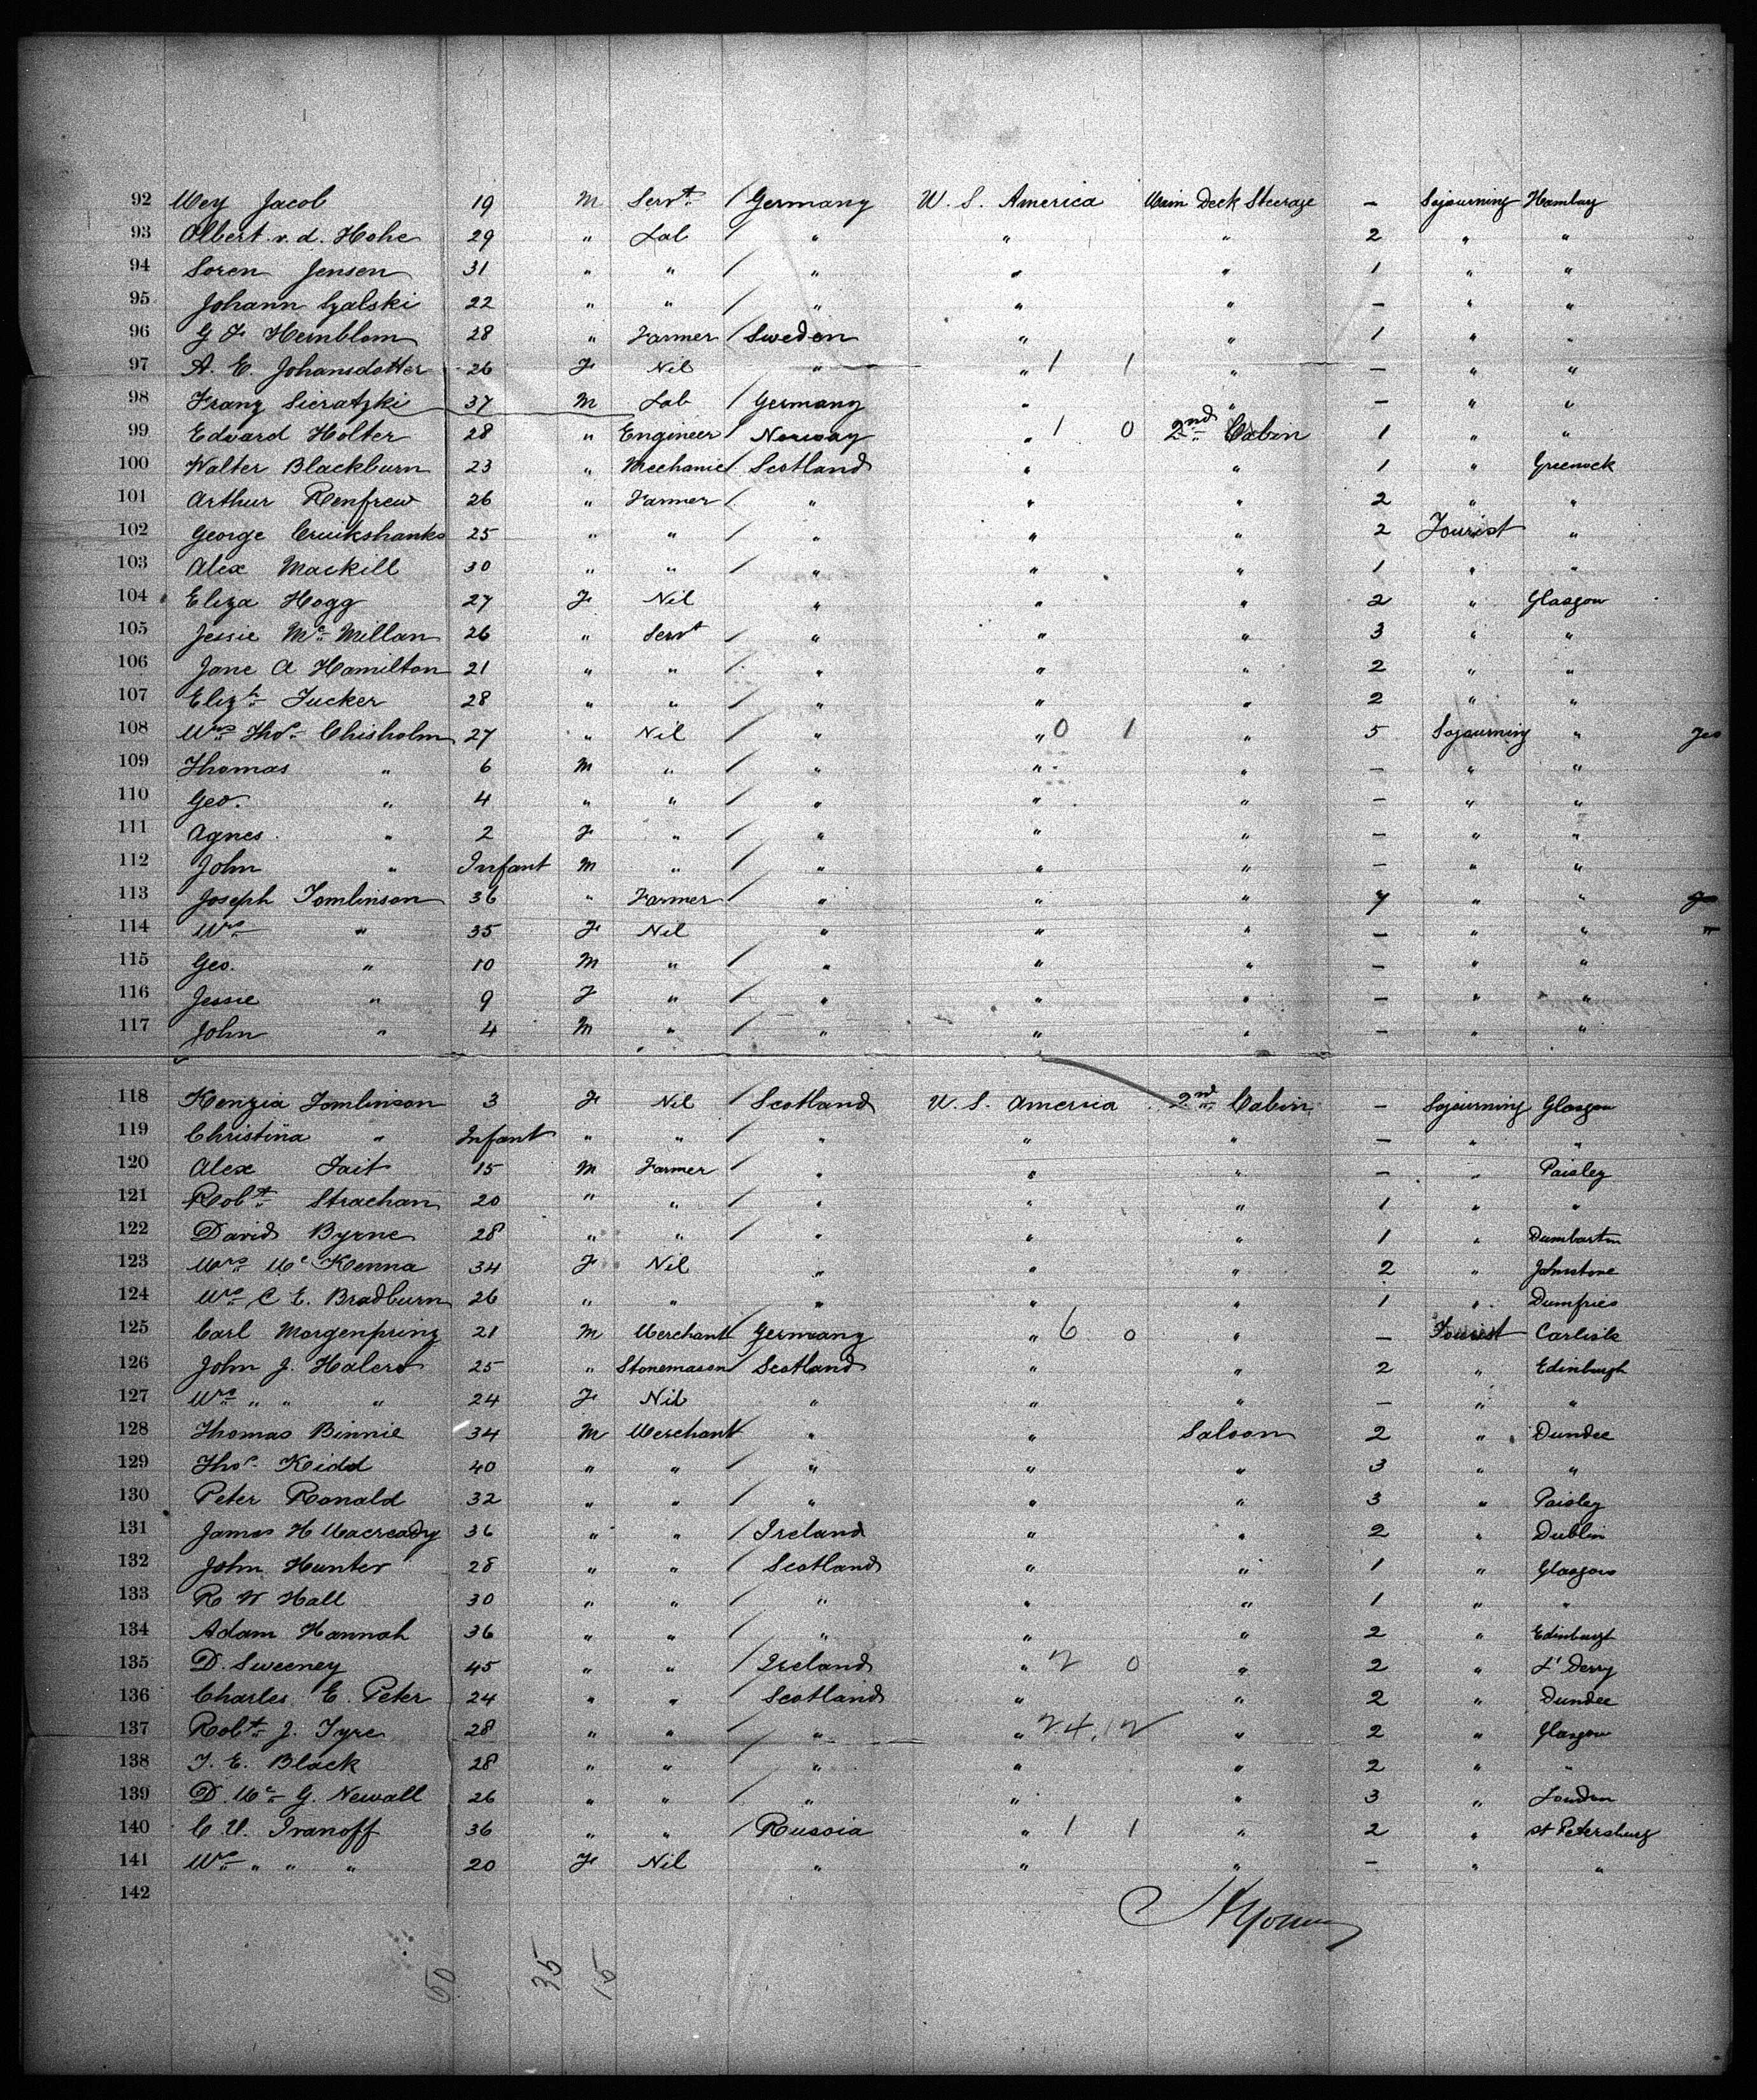 92 Wey Jacob 19 M Servt Germany U. S. America Main Deck Steerage – Sojourning Hamburg
93 Albert v. d. Hohe 29 " Lab / " " " 2 " "
94 Soren Jensen 31 " " / " " " 1 " "
95 Johann Szalski 22 " " / " " " – " "
96 G F Hernblom 28 " Farmer / Sweden " " 1 " "
97 A. E. Johansdotter 26 F Nil " " 1 1 " – " "
98 Franz Sieratzki 37 M Lab / Germany " " – " "
99 Edvard Holter 28 " Engineer / Norway " 1 0 2nd Cabin 1 " "
100 Walter Blackburn 23 " Mechanic / Scotland " " 1 " Greenock
101 Arthur Renfrew 26 " Farmer / " " " 2 " "
102 George Cruikshanks 25 " " / " " " 2 Tourist "
103 Alex Mackill 30 " " / " " " 1 " "
104 Eliza Hogg 27 F Nil " " " 2 " Glasgow
105 Jessie Mc Millan 26 " Servt / " " " 3 " "
106 Jane A Hamilton 21 " " / " " " 2 " "
107 Elizth Tucker 28 " " / " " " 2 " "
108 Mrs Thos Chisholm 27 " Nil / " " 0 1 " 5 Sojourning "
109 Thomas " 6 M " / " " " – " "
110 Geo. " 4 " " / " " " – " "
111 Agnes " 2 F " / " " " – " "
112 John " Infant M " / " " " – " "
113 Joseph Tomlinson 36 " Farmer / " " " 7 " "
114 Mrs " 35 F Nil " " " – " " "
115 Geo. " 10 M " / " " " – " "
116 Jessie " 9 F " / " " " – " "
117 John " 4 M " / " " " – " "
118 Kenzia Tomlinson 3 F Nil / Scotland U. S. America 2nd Cabin – Sojourning Glasgow
119 Christina " Infant " " / " " " – " "
120 Alex Tait 15 M Farmer / " " " – " Paisley
121 Robt Strachan 20 " " / " " " 1 " "
122 David Byrne 28 " " / " " " 1 " Dumbarton
123 Mrs Mc Kenna 34 F Nil " " " 2 " Johnstone
124 Mrs C E. Bradburn 26 " " " " " 1 " Dumfries
125 Carl Morgenpring 21 M Merchant Germany " 6 0 " – Tourist Carlisle
126 John J. Halcro 25 " Stonemason / Scotland " " 2 " Edinburgh
127 Mrs " " " 24 F Nil " " " – " "
128 Thomas Binnie 34 M Merchant " " Saloon 2 " Dundee
129 Thos Kidd 40 " " / " " " 3 " "
130 Peter Ronald 32 " " / " " " 3 " Paisley
131 James H Macready 36 " " / Ireland " " 2 " Dublin
132 John Hunter 28 " " / Scotland " " 1 " Glasgow
133 R W Hall 30 " " / " " " 1 " "
134 Adam Hannah 36 " " / " " " 2 " Edinburgh
135 D. Sweeney 45 " " / Ireland " 2 0 " 2 " L' Derry
136 Charles E. Peter 24 " " Scotland " " 2 " Dundee
137 Robt J. Tyre 28 " " / " " 24 12 " 2 " Glasgow
138 T. E. Black 28 " " / " " " 2 " "
139 D. Mc G. Newall 26 " " / " " " 3 " London
140 C. U. Ivanoff 36 " " / Russia " 1 1 " 2 " St Petersburg
141 Mrs " " " 20 F Nil " " " – " "
142
50 35 15